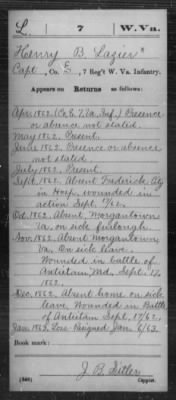 L. 7 W. Va.
Henry B. Lazier
Capt, Co. E, 7 Reg't W. Va. Infantry.
Appears on Returns as follows:
Apr. 1862. (Co. E. 7. Va. Inf.) Presence
or absence not stated.
May 1862. Present.
June 1862. Presence or absence
not stated.
July 1862. Present.
Sept. 1862. Absent Frederick City
in Hosp. wounded in
action Sept. 17/62.
Oct. 1862. Absent Morgantown
Va. on sick furlough.
Nov. 1862. Absent Morgantown
Va. On sick leave.
Wounded in battle of
Antietam, Md. Sept. 17,
1862.
Dec. 1862. Absent home on sick
leave. Wounded in Battle
of Antietam Sept. 17/62.
Jan. 1863. Loss Resigned Jan. 6/63.
Book mark:
J. B. Sitler
(546) Copyist.